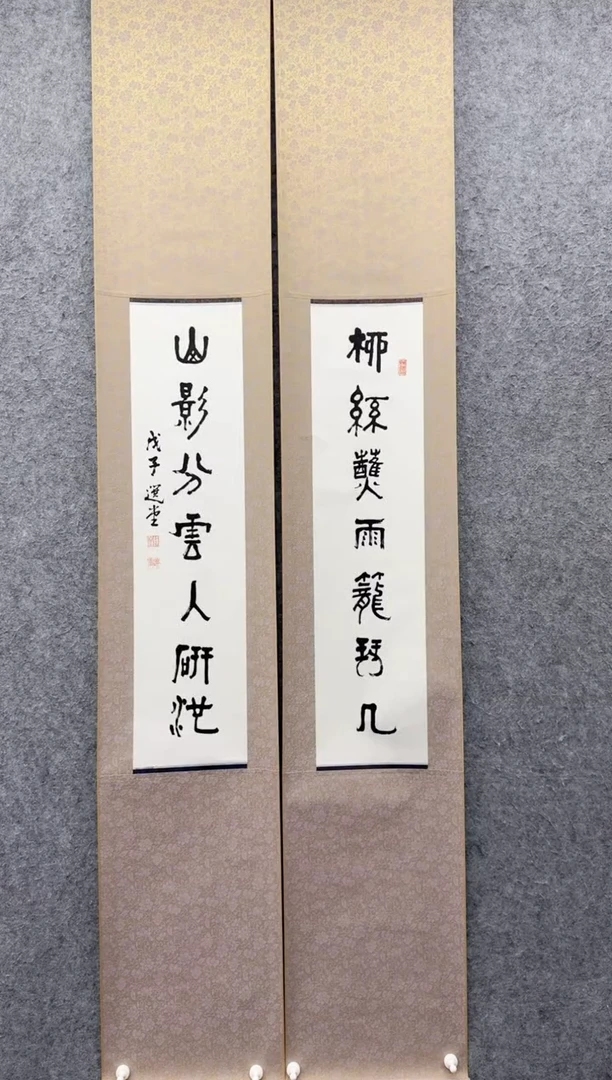 柳絲蘸雨籠琴几
山影分雲入研池
戊子選堂